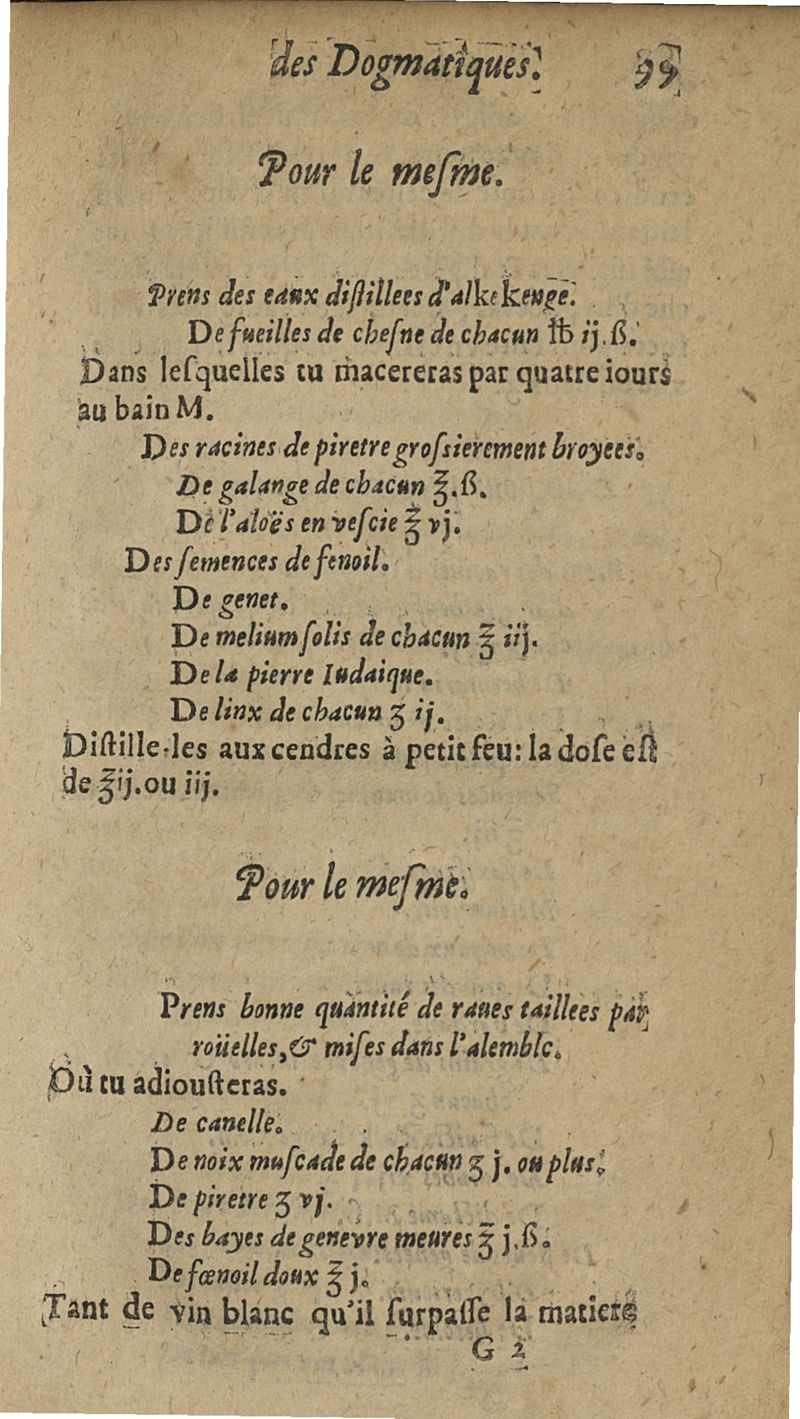 des Dogmatiques. 99
Pour le meſme.
Prens des eaux diſtillees d'alkekenge.
De fueilles de cheſne de chacun ℔ ij.ß.
Dans leſquelles tu macereras par quatre iours
au bain M.
Des racines de piretre groſsierement broyees.
De galange de chacun ℥.ß.
De l'aloës en veſcie ℥ vj.
Des ſemences de fenoil.
De genet.
De melium ſolis de chacun ℥ iij.
De la pierre Iudaique.
De linx de chacun ʒ ij.
Diſtille-les aux cendres à petit feu: la doſe eſt
de ℥ij. ou iij.
Pour le meſme.
Prens bonne quantité de raues taillees par
roüelles, & miſes dans l'alembic.
Où tu adiouſteras.
De canelle.
De noix muſcade de chacun ʒ j. ou plus.
De piretre ʒ vj.
Des bayes de genevre meures ℥ j.ß.
De fœnoil doux ℥ j.
Tant de vin blanc qu'il ſurpaſſe la matiere
G 2